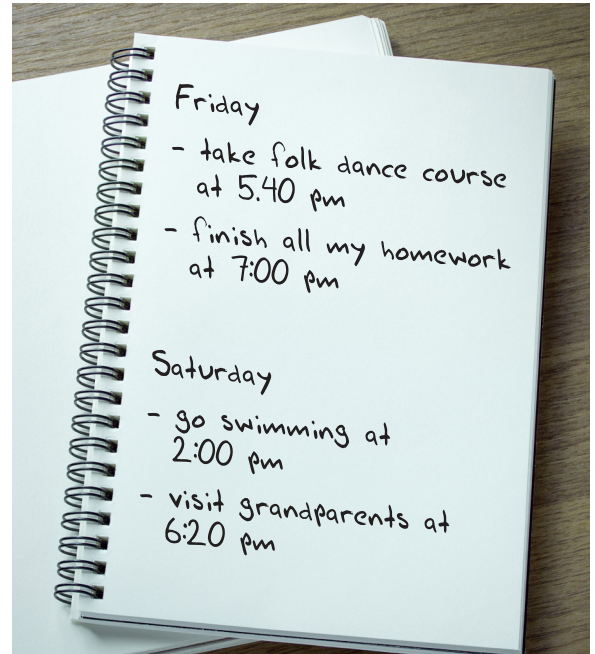 Friday
- take folk dance course
at 5.40 pm
- finish all my homework
at 7:00 pm
Saturday
- go swimming at
2:00 pm
- visit grandparents at
6:20 pm